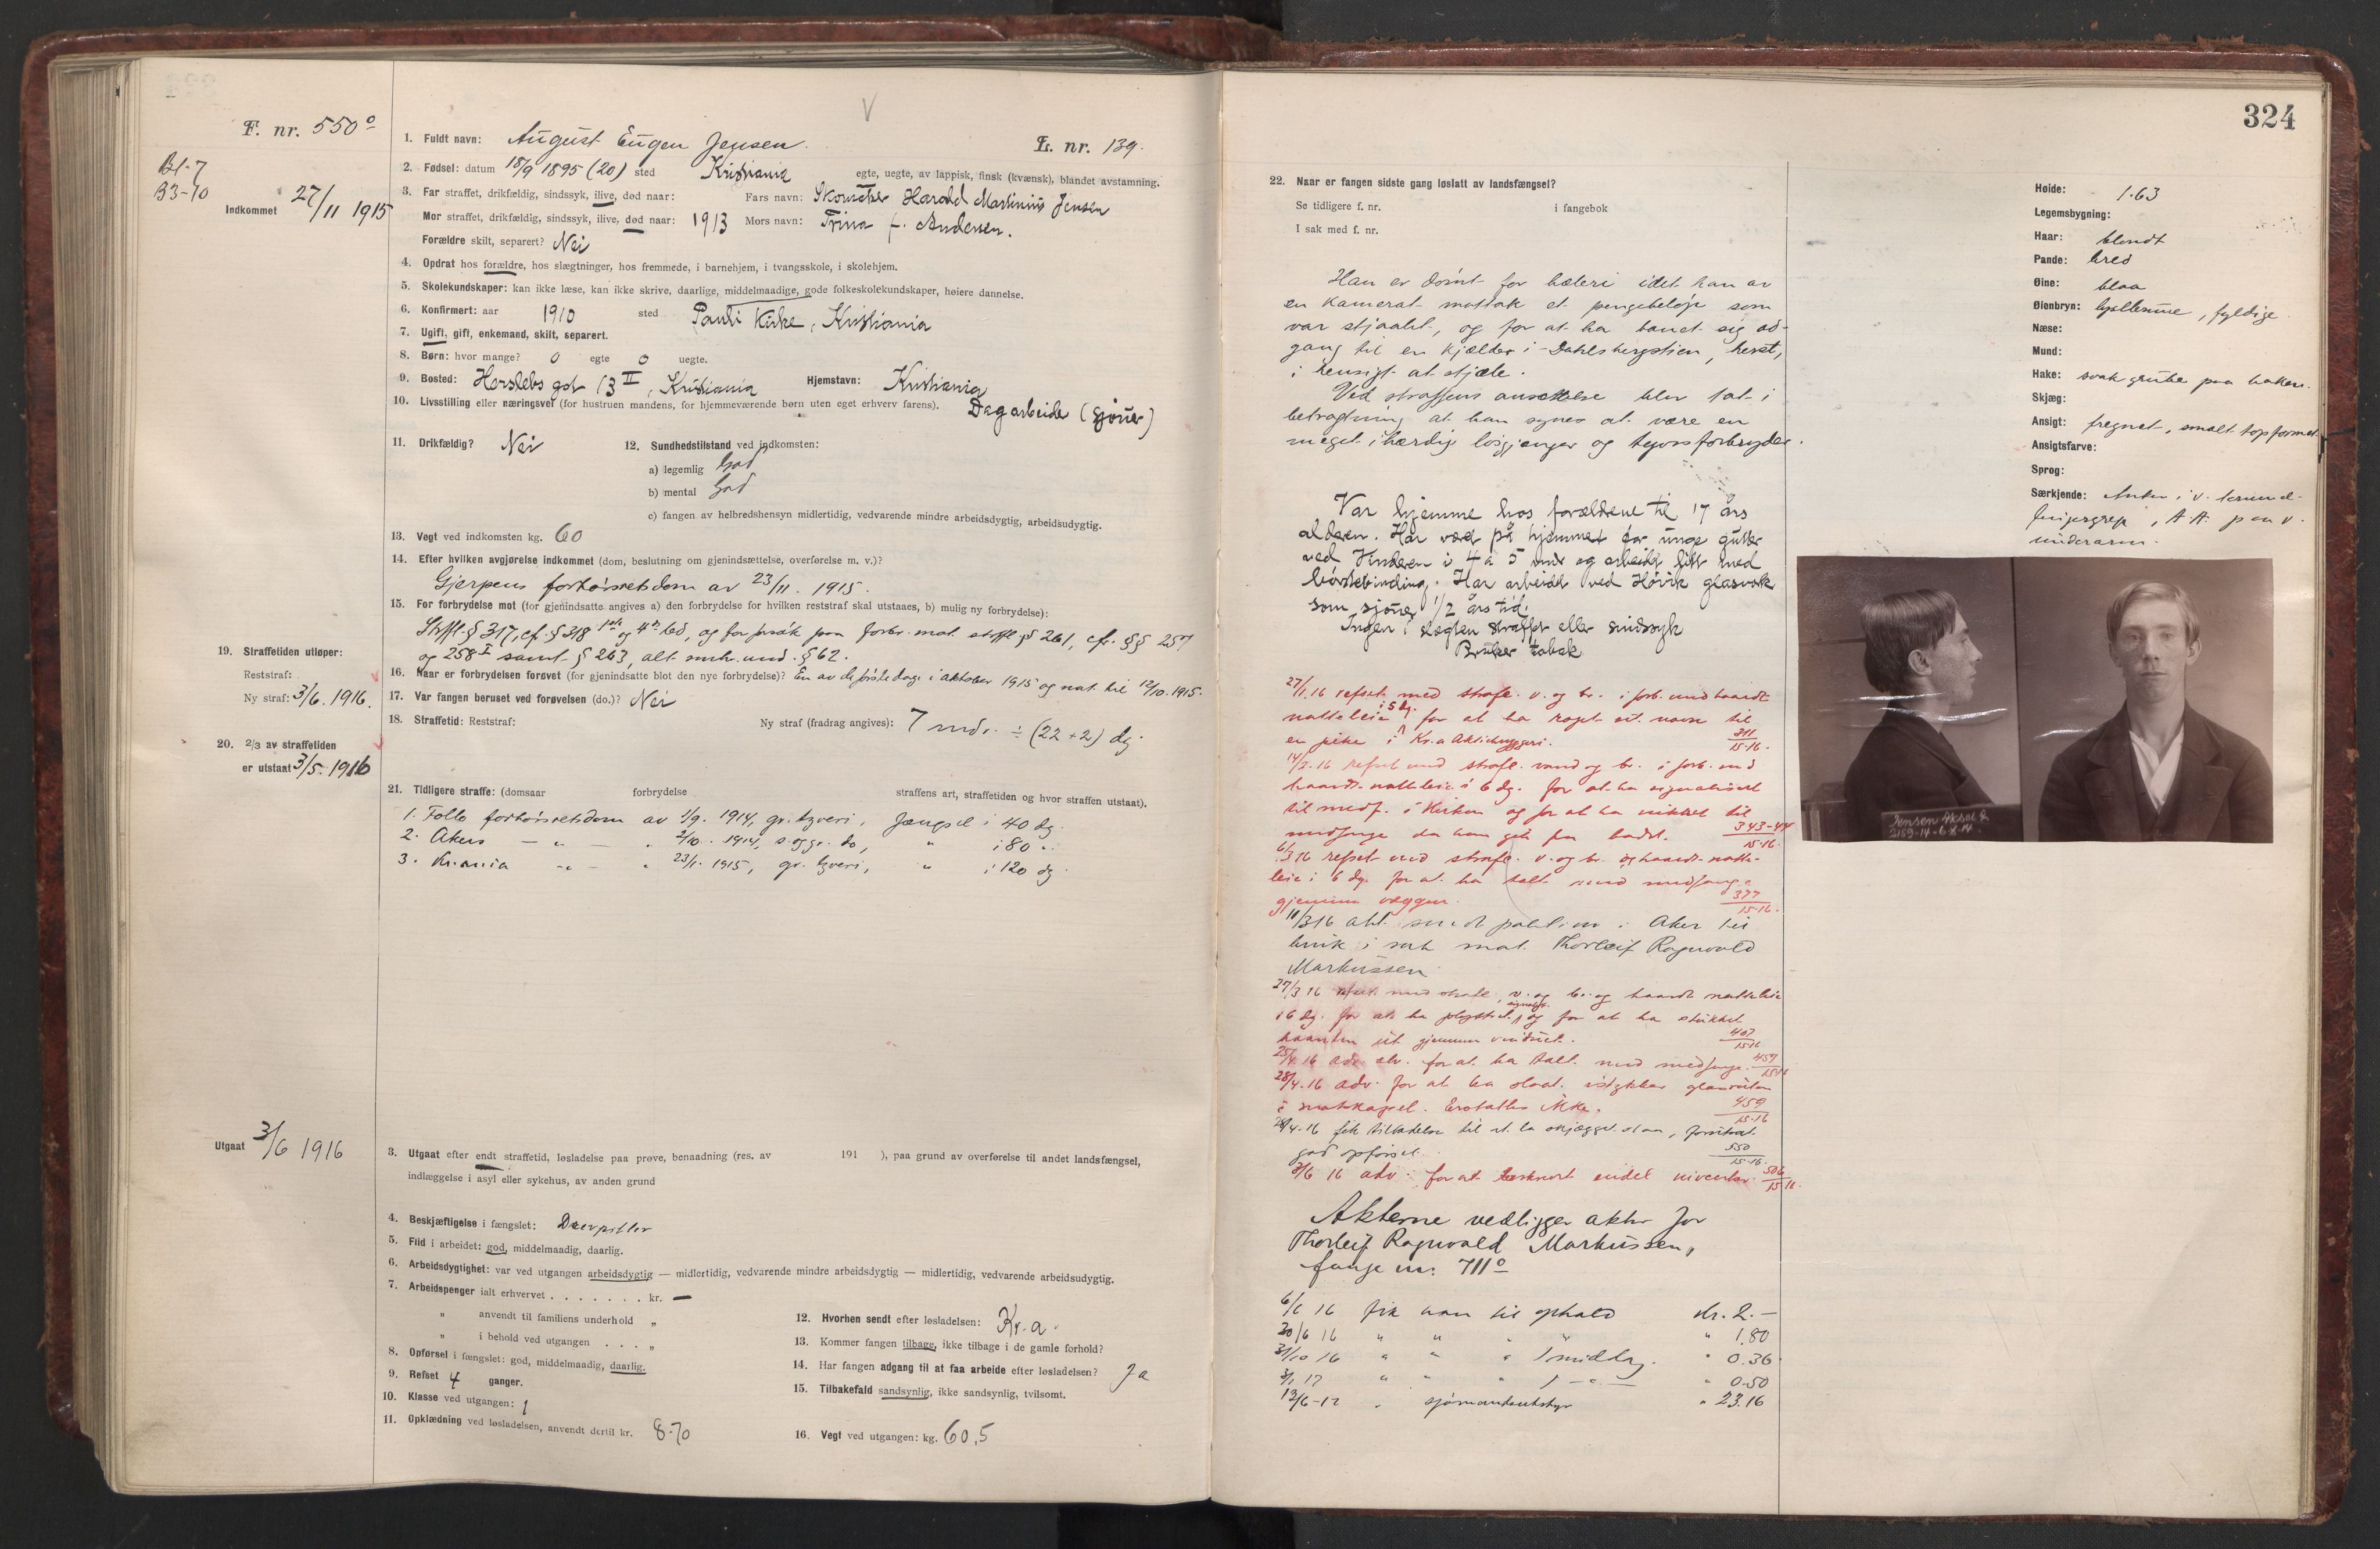 F. nr. 550°
B1-7
B3-10
Indkommet 27/11 1915
1. Fuldt navn: August Eugen Jensen.
L. nr. 139.
2. Fødsel: datum 18/9 1895 (20) sted Kristiania egte, uegte, av lappisk, finsk (kvænsk), blandet avstamning.
3. Far straffet, drikfældig, sindssyk, ilive, død naar: Fars navn: Skomaker Harald Martinius Jensen
Mor straffet, drikfældig, sindssyk, ilive, død naar: 1913 Mors navn: Trina f. Andersen.
Forældre skilt, separert? Nei
4. Opdrat hos forældre, hos slægtninger, hos fremmede, i barnehjem, i tvangsskole, i skolehjem.
5. Skolekundskaper: kan ikke læse, kan ikke skrive, daarlige, middelmaadige, gode folkeskolekundskaper, høiere dannelse.
6. Konfirmert: aar 1910 sted Pauli Kirke, Kristiania
7. Ugift, gift, enkemand, skilt, separert.
8. Børn: hvor mange? 0 egte 0 uegte.
9. Bosted: Herslebs gt 13 II, Kristiania Hjemstavn: Kristiania
10. Livsstilling eller næringsvei (for hustruen mandens, for hjemmeværende børn uten eget erhverv farens). Dagarbeider (sjöner)
11. Drikfældig? Nei
12. Sundhedstilstand ved indkomsten:
a) legemlig God
b) mental God
c) fangen av helbredshensyn midlertidig, vedvarende mindre arbeidsdygtig, arbeidsudygtig.
13. Vegt ved indkomsten kg. 60
14. Efter hvilken avgjørelse indkommet (dom, beslutning om gjenindsættelse, overførelse m. v.)?
Gjerpens forhörsretsdom av 23/11. 1915.
15. For forbrydelse mot (for gjenindsatte angives a) den forbrydelse for hvilken reststraf skal utstaaes, b) mulig ny forbrydelse):
Strfl. § 317, cf. § 318 1ste og 4de led, og for forsök paa forbr. mot strffl. § 261, cfr. §§ 257
og 258 I samt § 263, alt smh. med. § 62.
16. Naar er forbrydelsen forøvet (for gjenindsatte blot den nye forbrydelse)? En av de förste dage i oktober 1915 og nat. til 12/10. 1915.
17. Var fangen beruset ved forøvelsen (do.)? Nei
18. Straffetid: Reststraf: Ny straf (fradrag angives): 7 mdr. ÷ (22 + 2) dg.
19. Straffetiden utløper:
Reststraf:
Ny straf: 3/6. 1916.
20. 2/3 av straffetiden
er utstaat 3/5. 1916
21. Tidligere straffe: (domsaar forbrydelse straffens art, straffetiden og hvor straffen utstaat).
1. Follo forhörsretsdom av 1/9. 1914, gr. tyveri, fængsel i 40 dg.
2. Akers — " — " 2/10. 1914, s. og gr. do, " i 80 "
3. Kr.ania " " 23/1. 1915, gr. tyveri, " i 120 dg.
Utgaat 3/6 1916
3. Utgaat efter endt straffetid, løsladelse paa prøve, benaadning (res. av 191 ), paa grund av overførelse til andet landsfængsel,
indlæggelse i asyl eller sykehus, av anden grund
4. Beskjæftigelse i fængslet: Drevpiller
5. Flid i arbeidet: god, middelmaadig, daarlig.
6. Arbeidsdygtighet: var ved utgangen arbeidsdygtig — midlertidig, vedvarende mindre arbeidsdygtig — midlertidig, vedvarende arbeidsudygtig.
7. Arbeidspenger ialt erhvervet . . . . . . . kr. —
" anvendt til familiens underhold "
" i behold ved utgangen . . . "
8. Opførsel i fængslet: god, middelmaadig, daarlig.
9. Refset 4 ganger.
10. Klasse ved utgangen: 1
11. Opklædning ved løsladelsen, anvendt dertil kr. 8.70
12. Hvorhen sendt efter løsladelsen: Kr.a.
13. Kommer fangen tilbage, ikke tilbage i de gamle forhold?
14. Har fangen adgang til at faa arbeide efter løsladelsen? Ja
15. Tilbakefald sandsynlig, ikke sandsynlig, tvilsomt.
16. Vegt ved utgangen: kg. 60,5
324
22. Naar er fangen sidste gang løslatt av landsfængsel?
Se tidligere f. nr. i fangebok
I sak med f. nr.
Han er dömt for hæleri idet han av
en kamerat mottok et pengebelöp som
var stjaalet, og for at ha banet sig ad-
gang til en kjælder i Dahlsbergstien, herst.,
i hensigt at stjæle.
Ved straffens ansættelse blev tat i
betragtning at han synes at være en
meget ihærdig lösgjænger og tyvsforbryder.
Var hjemme hos forældrene til 17 års
alderen. Har været på hjemmet for unge gutter
ved Hinderen i 4 à 5 mdr og arbeidet litt med
börstebinding. Har arbeidet ved Hövik glasverk
som sjöner 1/2 års tid.
Ingen i slægten straffet eller sindssyk
Bruker tobak
27/1.16 refset med strafc. v. og br. i forb. med haardt
natteleie i 5 dg. for at ha ropt sit navn til
en pike i Kr.a Aktiebryggeri. 311/15-16.
14/2.16 refset med strafc. vand og br. i forb. med
haardt natteleie i 6 dg. for at ha signalisert
til medf. i Kirken og for at ha nikket til
medfange da han gik fra badet. 343-44/15-16.
6/3 16 refset med strafc. v. og br. og haardt natte-
leie i 6 dg. for at ha talt med medfange
gjennem væggen. 377/15-16.
11/3 16 akt. sendt politiet i Aker til
bruk i sak mot Thorleif Ragnvald
Markussen
27/3 16 refset med strafc. v. og br. og haardt natteleie
i 6 dg. for at ha plystret, signalist. og for at ha stukket
haanden ut gjennem vinduet. 407/15-16
25/4 16 adv. for at ha talt med medfange. 457/15-16
28/4.16 adv. for at ha slaat istykker glasruten
i matskapet. Erstattes ikke. 459/15-16
fik tilladelse til at la skjægget staa, forutsat
god opförsel. 550/15-16.
3/6 16 adv. for at 506/15-16.
Akterne vedligger akter for
Thorleif Ragnvald Markussen,
fange nr. 711°
6/6 16 fik han til ophold kr. 2.—
30/6 16 " " " " " 1.80
31/10 16 " " " 1 middag. " 0.36
3/1 17 " " " 1 — " — " 0.50
13/6-17 " sjömandsutstyr " 23.16
Høide: 1.63
Legemsbygning:
Haar: blondt
Pande: bred
Øine: blaa
Øienbryn: lysebrune, fyldige.
Næse:
Mund:
Hake: svak grube paa haken.
Skjæg:
Ansigt: fregnet, smalt topformet
Ansigtsfarve:
Sprog:
Særkjende: Anker i v. tommel-
fingergrep, A.A. paa v.
underarm.
Jensen Aksel
2159-14-6-8-14